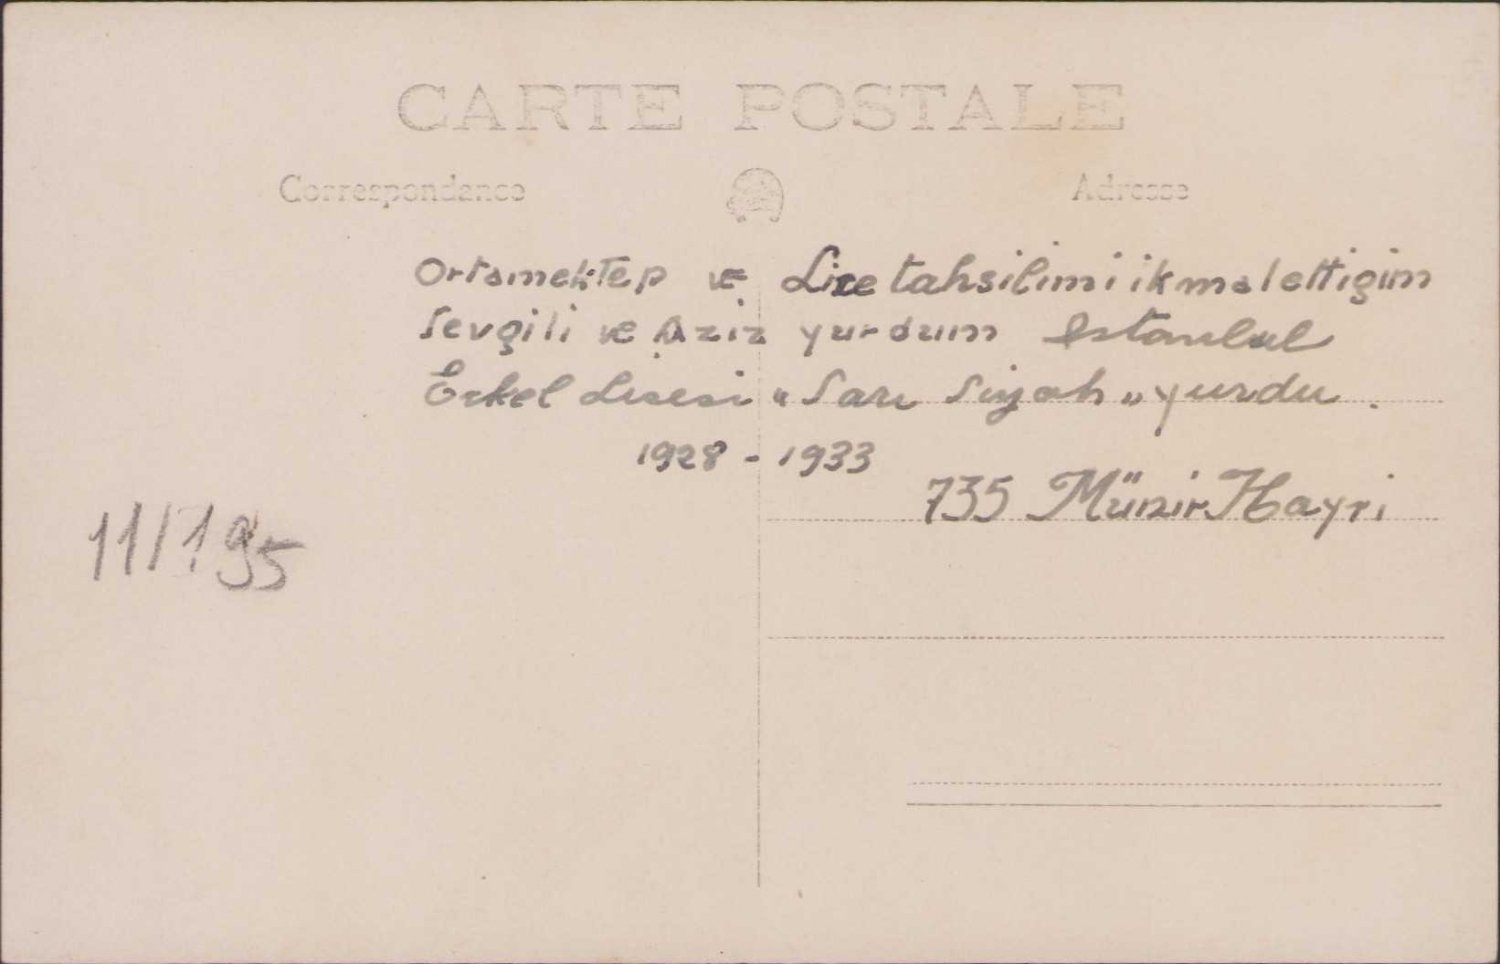 CARTE POSTALE
Correspondance
Adresse
Ortamektep ve Lise tahsilimi ikmal ettigim
Sevgili ve Aziz yurdum Istanbul
Erkek Lisesi "Sarı Siyah" yurdu.
1928 - 1933
735 Münir Hayri
11/195